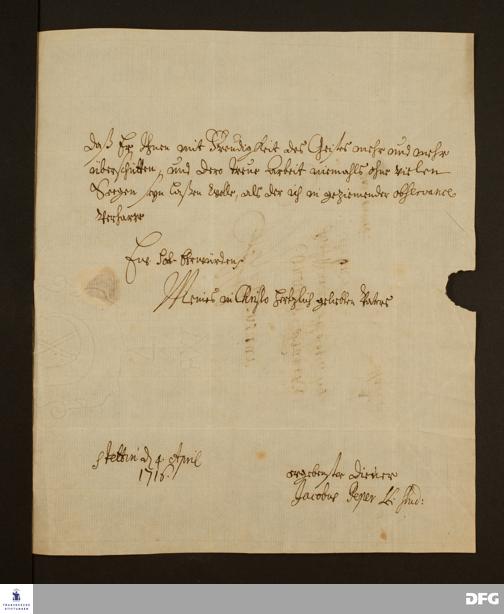 daß Er Ihnen mit Freudigkeit des Geistes mehr und mehr
überschütten, und dero treue Arbeit niemahls ohne vielen
Seegen seyn laßen wolle, als der ich in geziemender observance
verharre
Ew. Hoch-
Meines in Christo hertzlich geliebten Vaters
Stettin d. 4. April
1716.
ergebenster Diener
Jacobus Peper
FRANCKESCHE STIFTUNGEN
DFG